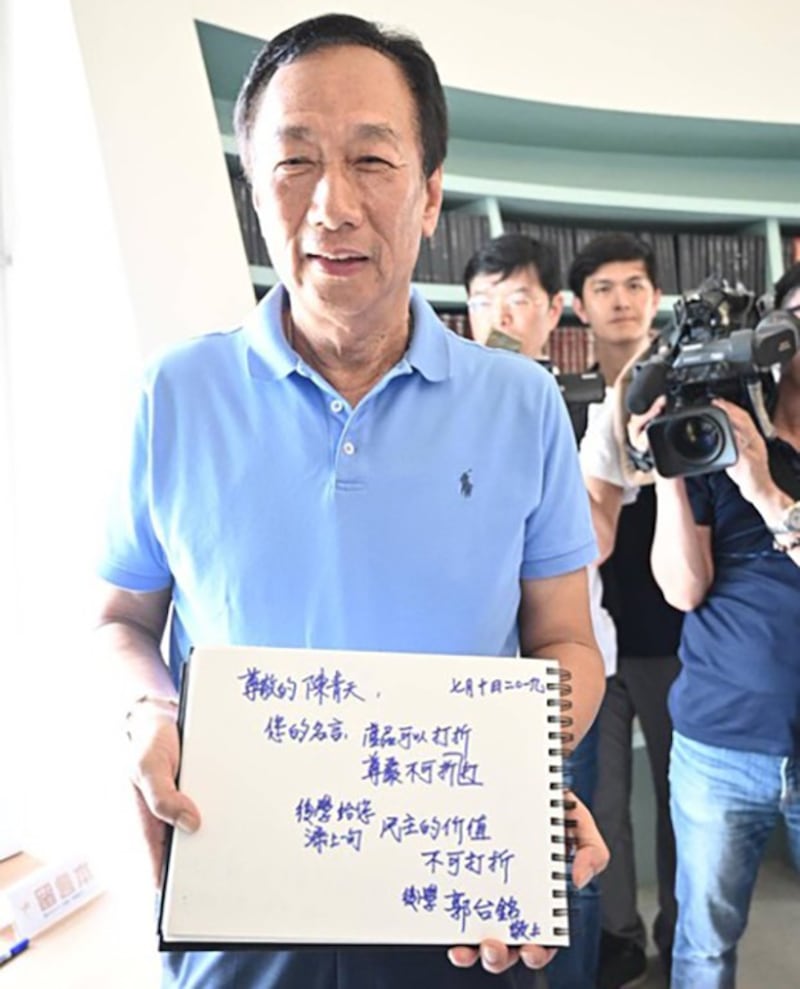 尊敬的陳青天， 七月十日二〇一九
您的名言，產品可以打折
尊嚴不可折打
後學給您
添上句 民主的价值
不可打折
後學 郭台銘
敬上